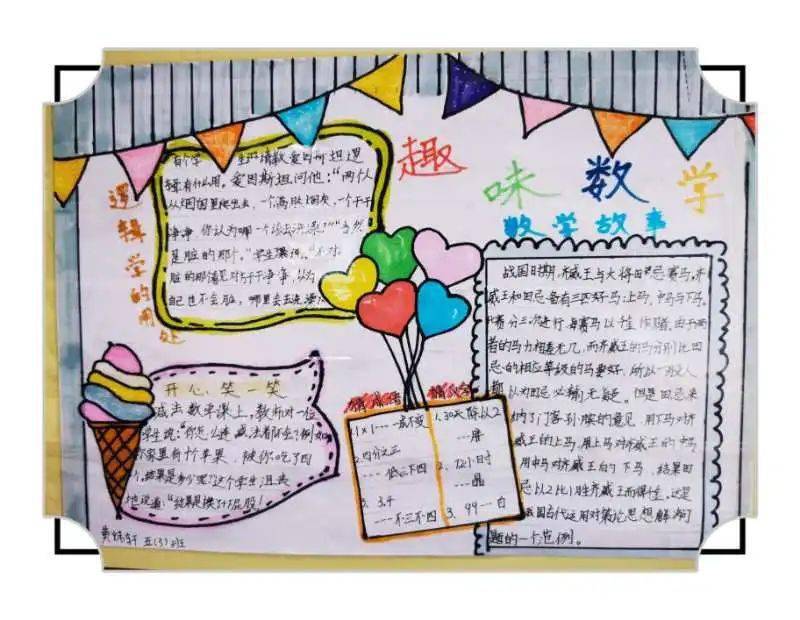 趣味数学
数学故事
逻辑学的用处
有个学生请教爱因斯坦逻
辑有什么用。爱因斯坦问他:"两个人
从烟囱里爬出去,一个满脸烟灰,一个干干
净净,你认为哪一个该去洗澡?""当然
是脏的那个。"学生
脏的那个看见对方干干净净,以为
自己也不会脏,哪里会去洗澡
开心笑一笑
减法数学课上,教师对一位
学生说:"你怎么连减法都不会?例如
你家里有十个苹果,被你吃了四
个,结果是多少呢?这个学生沮丧
地说道:"结果是挨了十下屁股!
黄 轩 五(3)班
猜成语
1. 1×1---一成不变
2. 四分之三
---低三下四
3. 3.4
---不三不四
猜汉字
1. 30天除以2
---胖
2. 72小时
---晶
3. 99---白
战国时期,齐威王与大将田忌赛马,齐
威王和田忌各有三匹好马:上马,中马与下马。
比赛分三次进行,每赛马以千金作赌。由于两
者的马力相差无几,而齐威王的马分别比田
忌的相应等级的马要好,所以一般人
都认为田忌必输无疑。但是田忌采
纳了门客孙膑的意见,用下马对齐
威王的上马,用上马对齐威王的中马,
用中马对齐威王的下马,结果田
忌以2比1胜齐威王而得千金。这是
我国古代运用对策论思想解决问
题的一个范例。